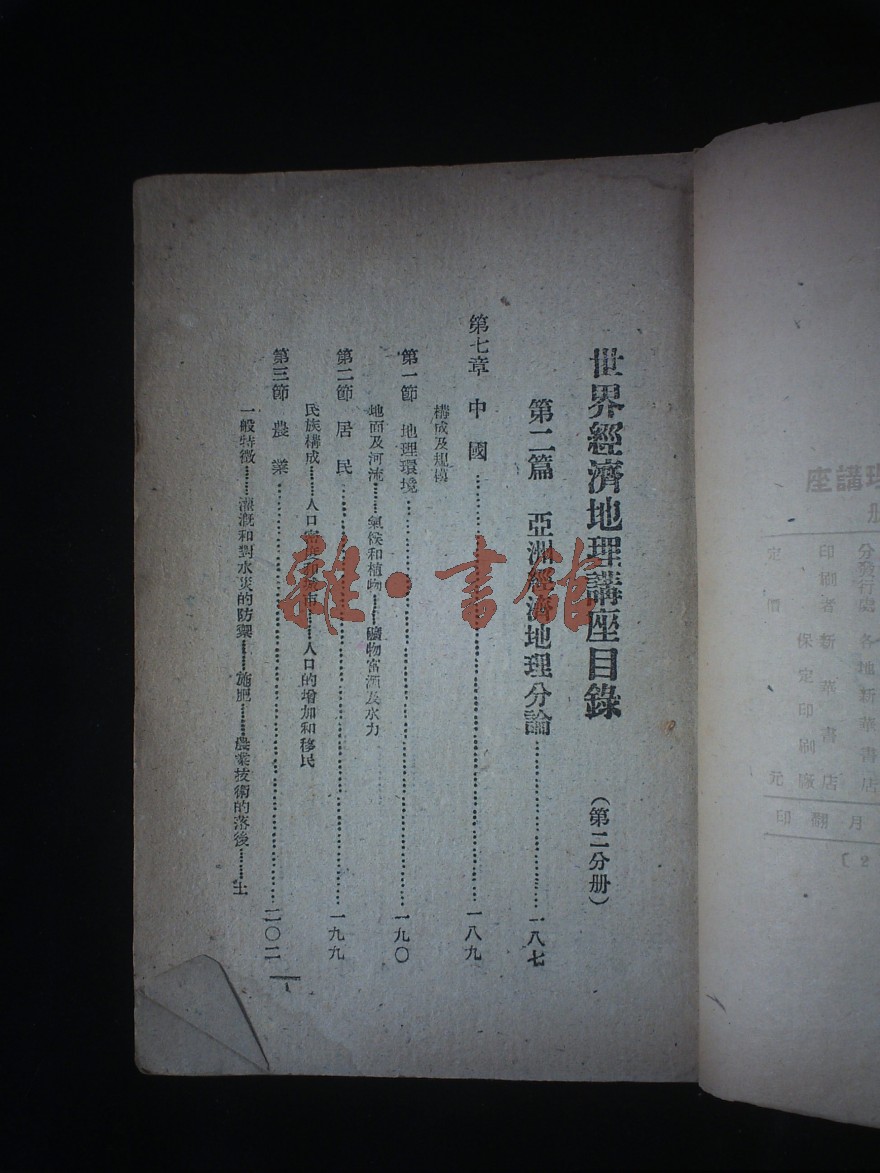 世界經濟地理講座目錄 (第二分册)
第二篇 亞洲經濟地理分論………一八七
第七章 中國………一八九
構成及規模
第一節 地理環境………一九〇
地面及河流………氣候和植物………礦物富源及水力
第二節 居民………一九九
民族構成………人口密度和城市………人口的增加和移民
第三節 農業………二〇二
一般特徵………灌溉和對水災的防禦………施肥………農業技術的落後………土
一
雜·書館
理講座
册
分發行處 各地新華書店
印刷者 新華書店
保定印刷廠
定價 元
月翻印
〔2